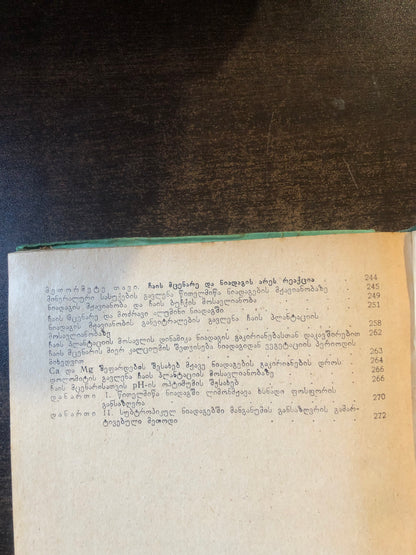 მეთორმეტე თავი. ჩაის მცენარე და ნიადაგის არეს რეაქცია . 244
მინერალური სასუქების გავლენა წითელმიწა ნიადაგების მჟავიანობაზე 245
ნიადაგის მჟავიანობა და ჩაის ბუჩქის მოსავლიანობა . . 249
ჩაის მცენარე და მოძრავი ალუმინი ნიადაგში . . . 251
ნიადაგის მჟავიანობის განეიტრალების გავლენა ჩაის პლანტაციის
მოსავლიანობაზე . . . . 258
ჩაის პლანტაციის მოსავლის დინამიკა ნიადაგის გაკირიანებასთან დაკავშირებით 262
ჩაის მცენარის მიერ კალციუმის შეთვისება ნიადაგიდან ვეგეტაციის პერიოდის
მიხედვით . . . . 263
Ca და Mg შეფარდების შესახებ მჟავე ნიადაგების გაკირიანების დროს . 264
დოლომიტის გავლენა ჩაის პლანტაციის მოსავლიანობაზე . . 266
ჩაის მცენარისათვის pH-ის ოპტიმუმის შესახებ . . . 266
დანართი I. წითელმიწა ნიადაგში ლიმონმჟავა ხსნადი ფოსფორის
განსაზღვრა . . . . 270
დანართი II. სუბტროპიკულ ნიადაგებში მანგანუმის განსაზღვრის გამარ-
ტივებული მეთოდი . . . . 272